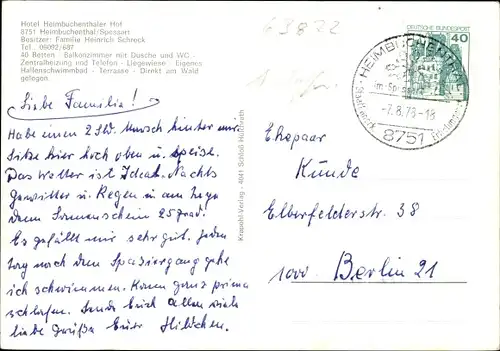 Hotel Heimbuchenthaler Hof
8751 Heimbuchenthal/Spessart
Besitzer: Familie Heinrich Schreck
Tel. 06092/687
40 Betten - Balkonzimmer mit Dusche und WC -
Zentralheizung und Telefon - Liegewiese - Eigenes
Hallenschwimmbad - Terrasse - Direkt am Wald
gelegen.
Liebe Familie!
Habe einen 2 Std. Marsch hinter mir
Sitze hier hoch oben u. speise.
Das Wetter ist Ideal. Nachts
Gewitter u. Regen u. am Tage
dann Sonnenschein 25 Grad.
Es gefällt mir sehr gut. Jeden
Tag nach dem Spaziergang gehe
ich schwimmen. Kann ganz prima
schlafen. Sende Euch allen viele
liebe Grüße Euer Hildchen.
Krapohl-Verlag - 4041 Schloß Hülchrath
63822
DEUTSCHE BUNDESPOST
40
HEIMBUCHENTHAL
im Spessart
-7.8.78-18
8751
Ehepaar
Kunde
Elberfelderstr. 38
1000 Berlin 21